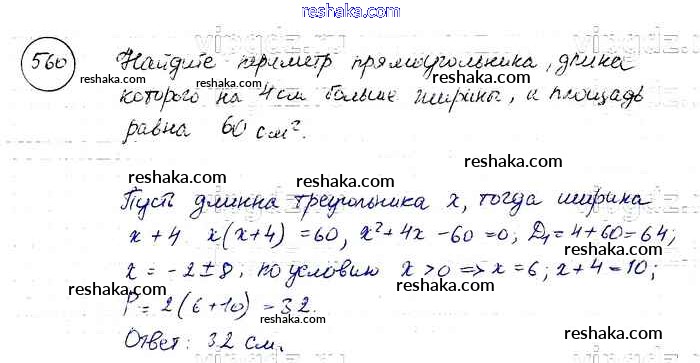 reshaka.com
560 Найдите периметр прямоугольника, длина
reshaka.com reshaka.com reshaka.com
которого на 4 см больше ширины, а площадь
равна 60 см².
reshaka.com reshaka.com
reshaka.com reshaka.com reshaka.com
Пусть длинна треугольника x, тогда ширина
x + 4 x(x+4) = 60, x² + 4x - 60 = 0; D₁ = 4 + 60 = 64;
reshaka.com reshaka.com reshaka.com
x = -2 ± 8; по условию x > 0 => x = 6; x + 4 = 10;
P = 2(6 + 10) = 32.
reshaka.com reshaka.com
Ответ: 32 см.
reshaka.com